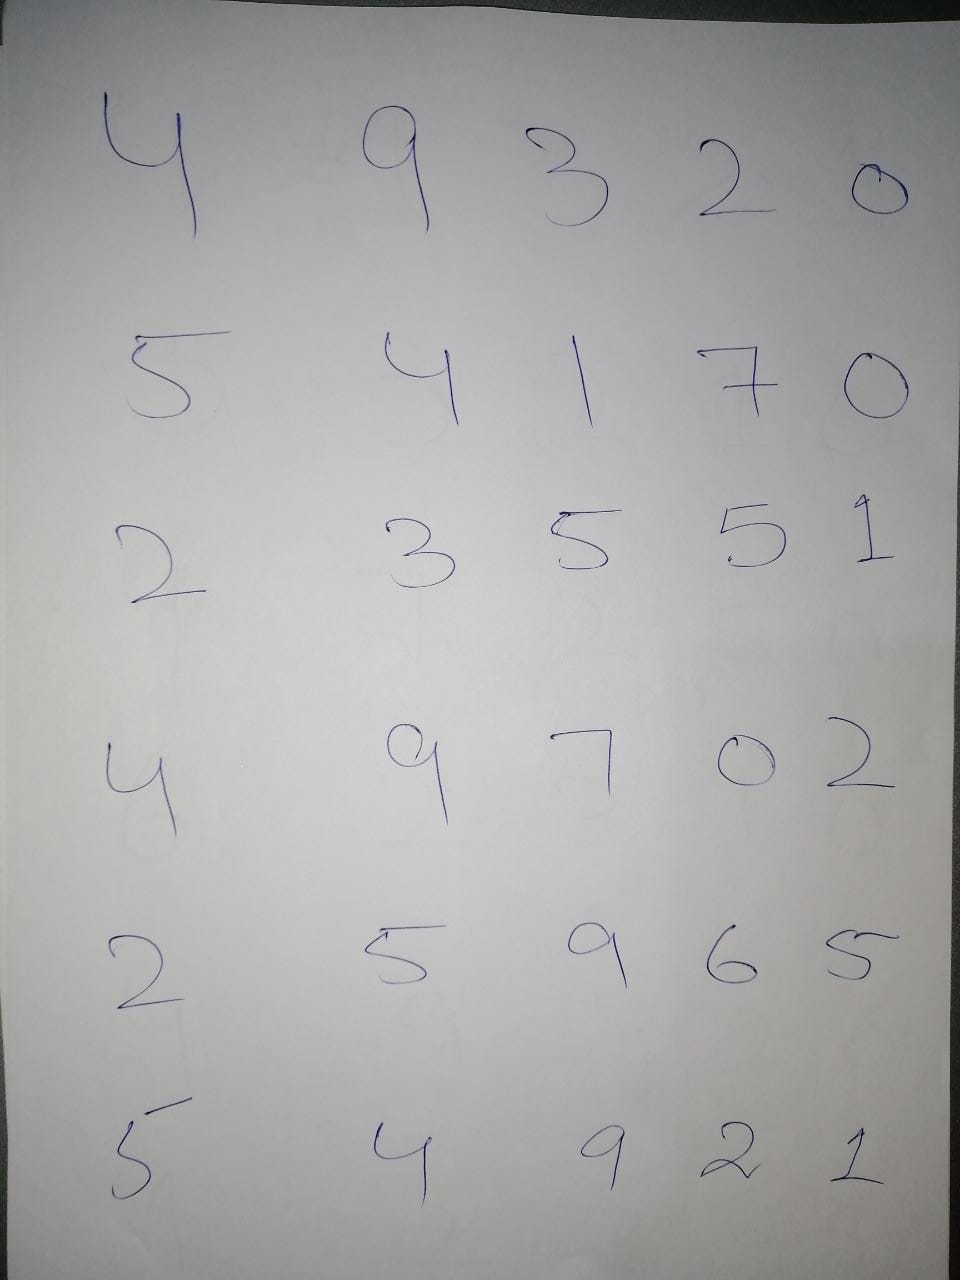 4 9 3 2 0
5 4 1 7 0
2 3 5 5 1
4 9 7 0 2
2 5 9 6 5
5 4 9 2 1